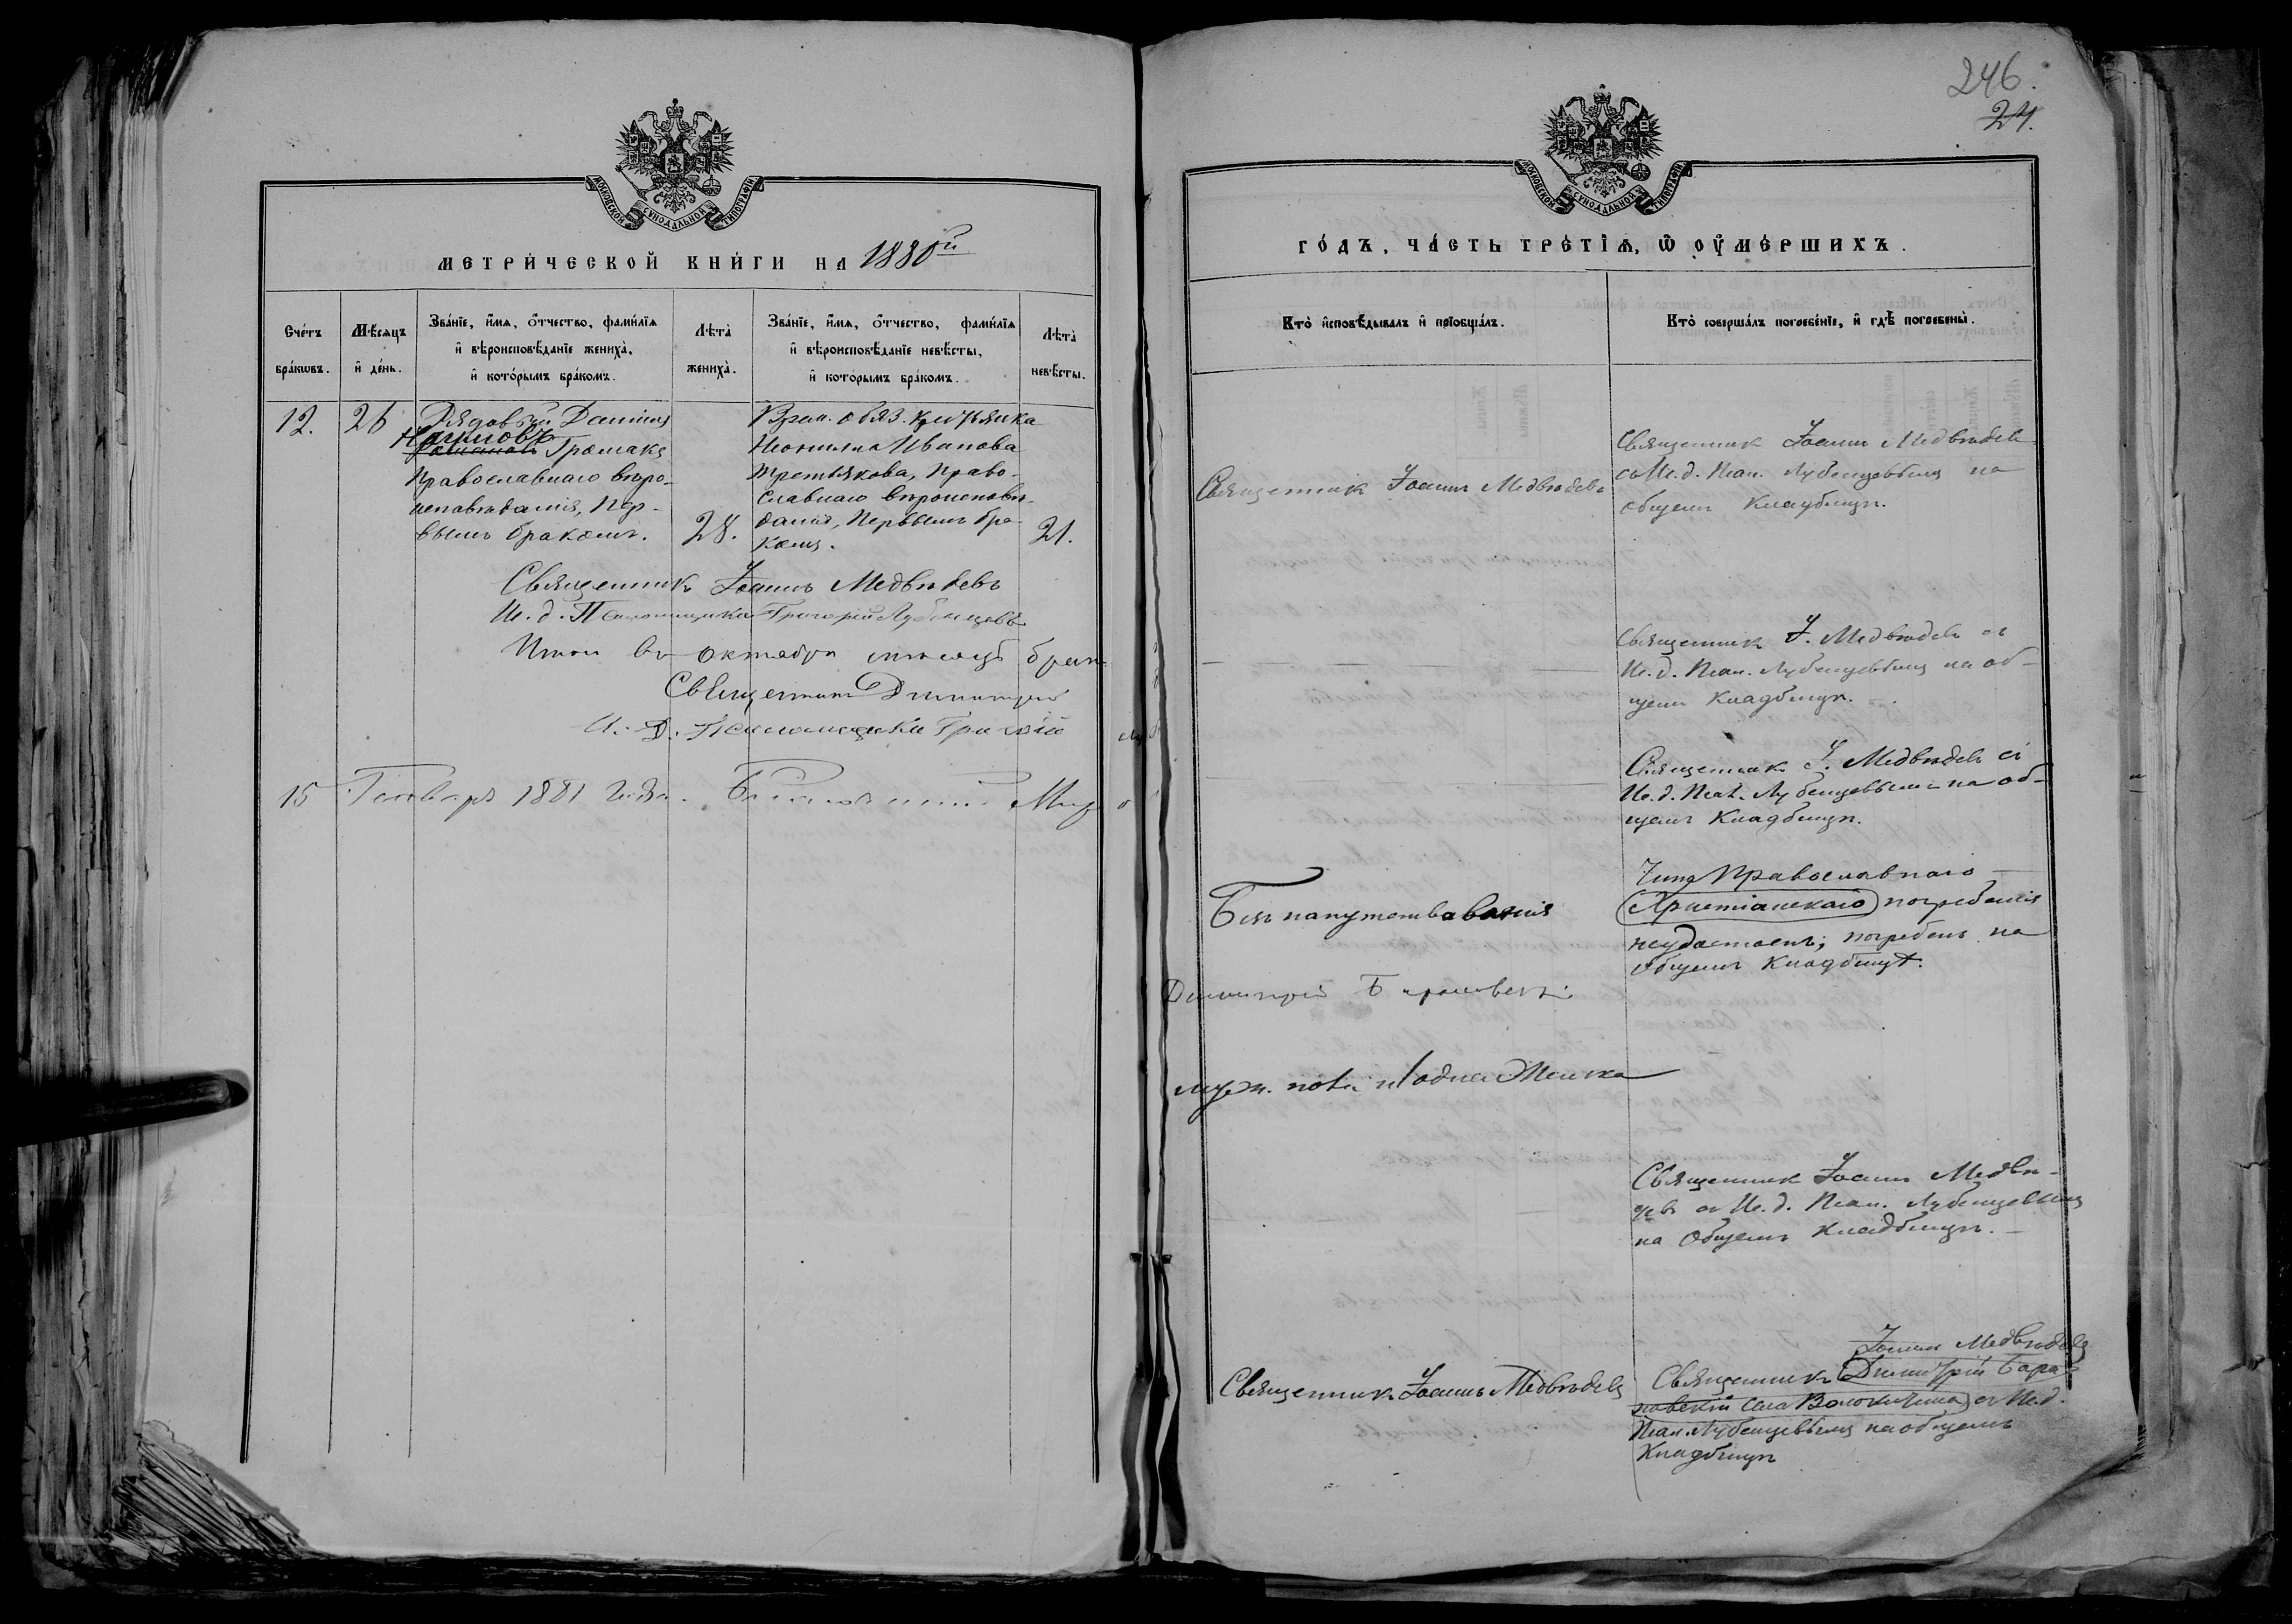 МОСКОВСКОЙ СУНОДАЛЬНОЙ ТИПОГРАФІИ
МЕТРИ́ЧЕСКОЙ КНИ́ГИ НА 1880й
Сче́тъ бра́кωвъ.
Мѣ́сяцъ и҆ де́нь.
Зва́нїе, и҆́мѧ, ѻ҆́тчество, фами́лїѧ
и҆ вѣроисповѣ́данїе жениха̀,
и҆ кото́рымъ бра́комъ.
Лѣта̀ жениха̀.
Зва́нїе, и҆́мѧ, ѻ҆́тчество, фами́лїѧ
и҆ вѣроисповѣ́данїе невѣ́сты,
и҆ кото́рымъ бра́комъ.
Лѣта̀ невѣ́сты.
12.
26
Рядовый Даніилъ
Громакъ
православнаго вѣро-
исповѣданія, пер-
вымъ бракомъ.
28.
Врем. обяз. крестьянка
Неонила Иванова
Третьякова, право-
славнаго вѣроисповѣ-
данія, первымъ бра-
комъ.
21.
Священникъ Іоаннъ Медвѣдевъ
И. д. Псаломщика Григорій Лубенцовъ
Итого въ октябрѣ мѣсяцѣ брак
Священникъ Димитрій
И. Д. Псаломщика Григорій
15 Генваря 1881 года.
246.
24.
МОСКОВСКОЙ СУНОДАЛЬНОЙ ТИПОГРАФІИ
ГО́ДЪ, ЧА́СТЬ ТРЕ́ТІѦ, Ѡ҆ ОУ҆МЕ́РШИХЪ.
Кто̀ и҆сповѣ́дывалъ и҆ прїобща́лъ.
Кто̀ соверша́лъ погребе́нїе, и҆ гдѣ̀ погребены̀.
Священникъ Іоаннъ Медвѣдевъ
Священникъ Іоаннъ Медвѣдевъ
съ И. д. Псал. Лубенцовымъ на
общемъ кладбищѣ.
Священникъ І. Медвѣдевъ съ
И. д. Псал. Лубенцовымъ на об-
щемъ кладбищѣ.
Священникъ І. Медвѣдевъ съ
И. д. Псал. Лубенцовымъ на об-
щемъ кладбищѣ.
Безъ напутствованія
Чина Православнаго
Христіанскаго погребенія
неудостоенъ; погребенъ на
общемъ кладбищѣ.
Димитрій Барановскій
муж. пола и одна женска
Священникъ Іоаннъ Медвѣ-
девъ съ И. д. Псал. Лубенцовымъ
на общемъ кладбищѣ.
Священникъ Іоаннъ Медвѣдевъ
Іоаннъ Медвѣдевъ
Священникъ Димитрій Бара-
новскій села Волокитина съ И. д.
Псал. Лубенцовымъ на общемъ
кладбищѣ